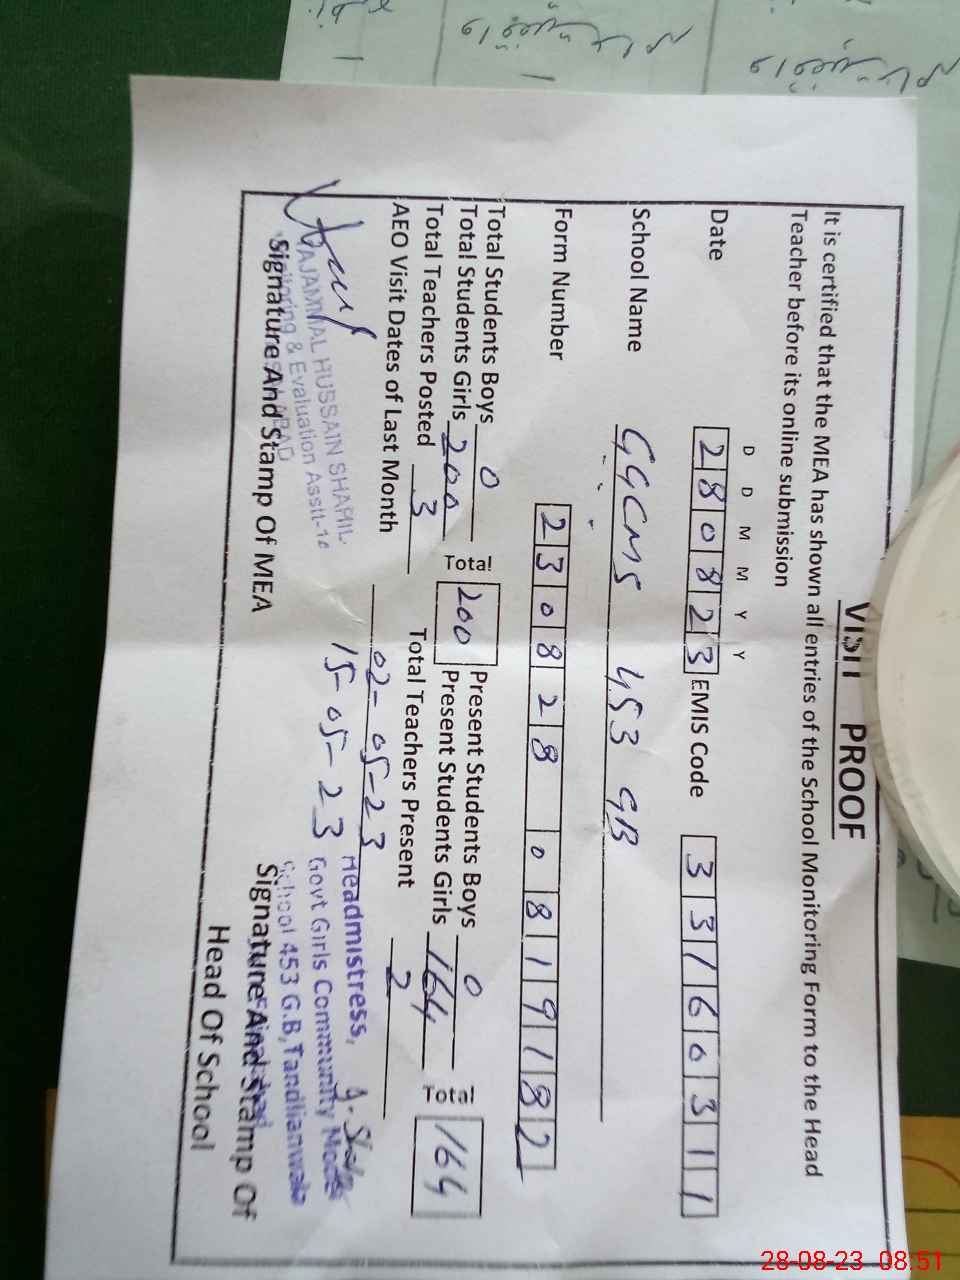 VISIT PROOF
It is certified that the MEA has shown all entries of the School Monitoring Form to the Head
Teacher before its online submission
D D M M Y Y
Date 2 8 0 8 2 3 EMIS Code 3 3 1 6 0 3 1 1
School Name GGCMS 453 GB
Form Number 2 3 0 8 2 8 0 8 1 9 1 8 2
Total Students Boys 0 Present Students Boys 0
Total Students Girls 200 Total 200 Present Students Girls 164 Total 164
Total Teachers Posted 3 Total Teachers Present 2
AEO Visit Dates of Last Month 02-05-23
15-05-23
TAJAMMAL HUSSAIN
Monitoring & Evaluation Asstt-
Signature And Stamp Of MEA
Headmistress,
Govt Girls Community Model
School 453 G.B, Tandlianwala
Signature And Stamp Of
Head Of School
28-08-23 08:51